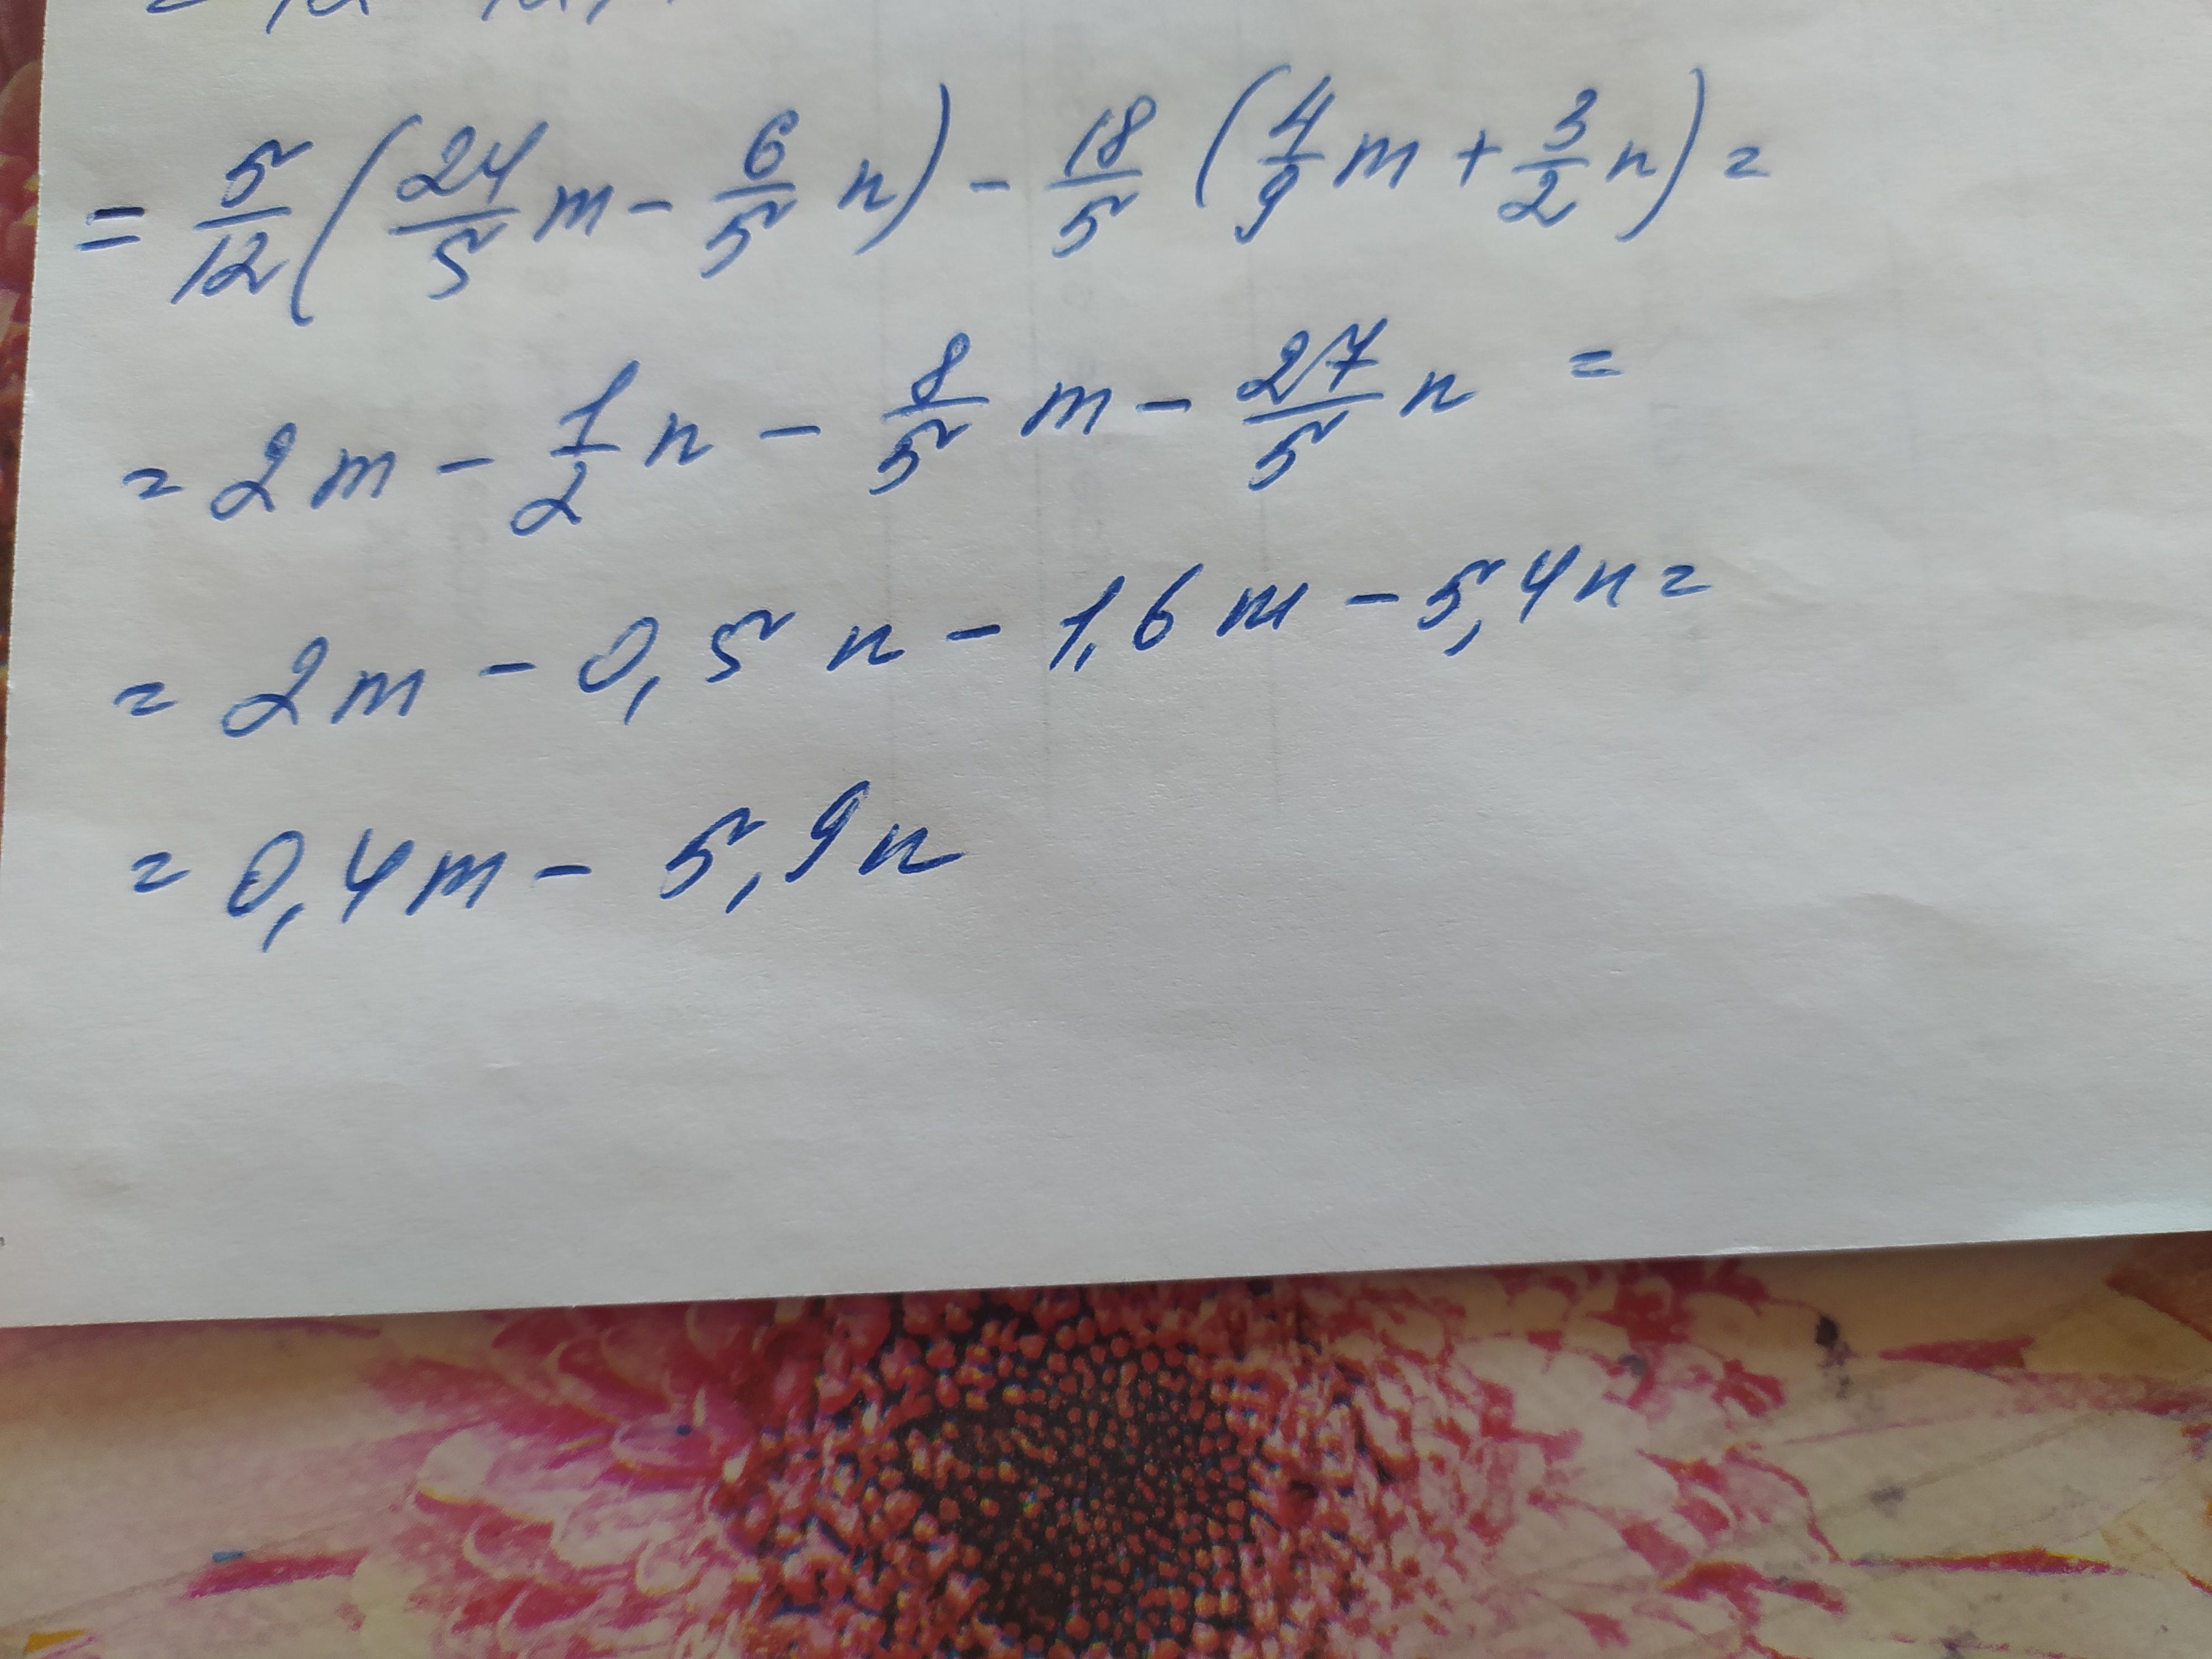 = 5/12 (24/5 m - 6/5 n) - 18/5 (4/9 m + 3/2 n) =
= 2m - 1/2 n - 8/5 m - 27/5 n =
= 2m - 0,5 n - 1,6 m - 5,4 n =
= 0,4m - 5,9n